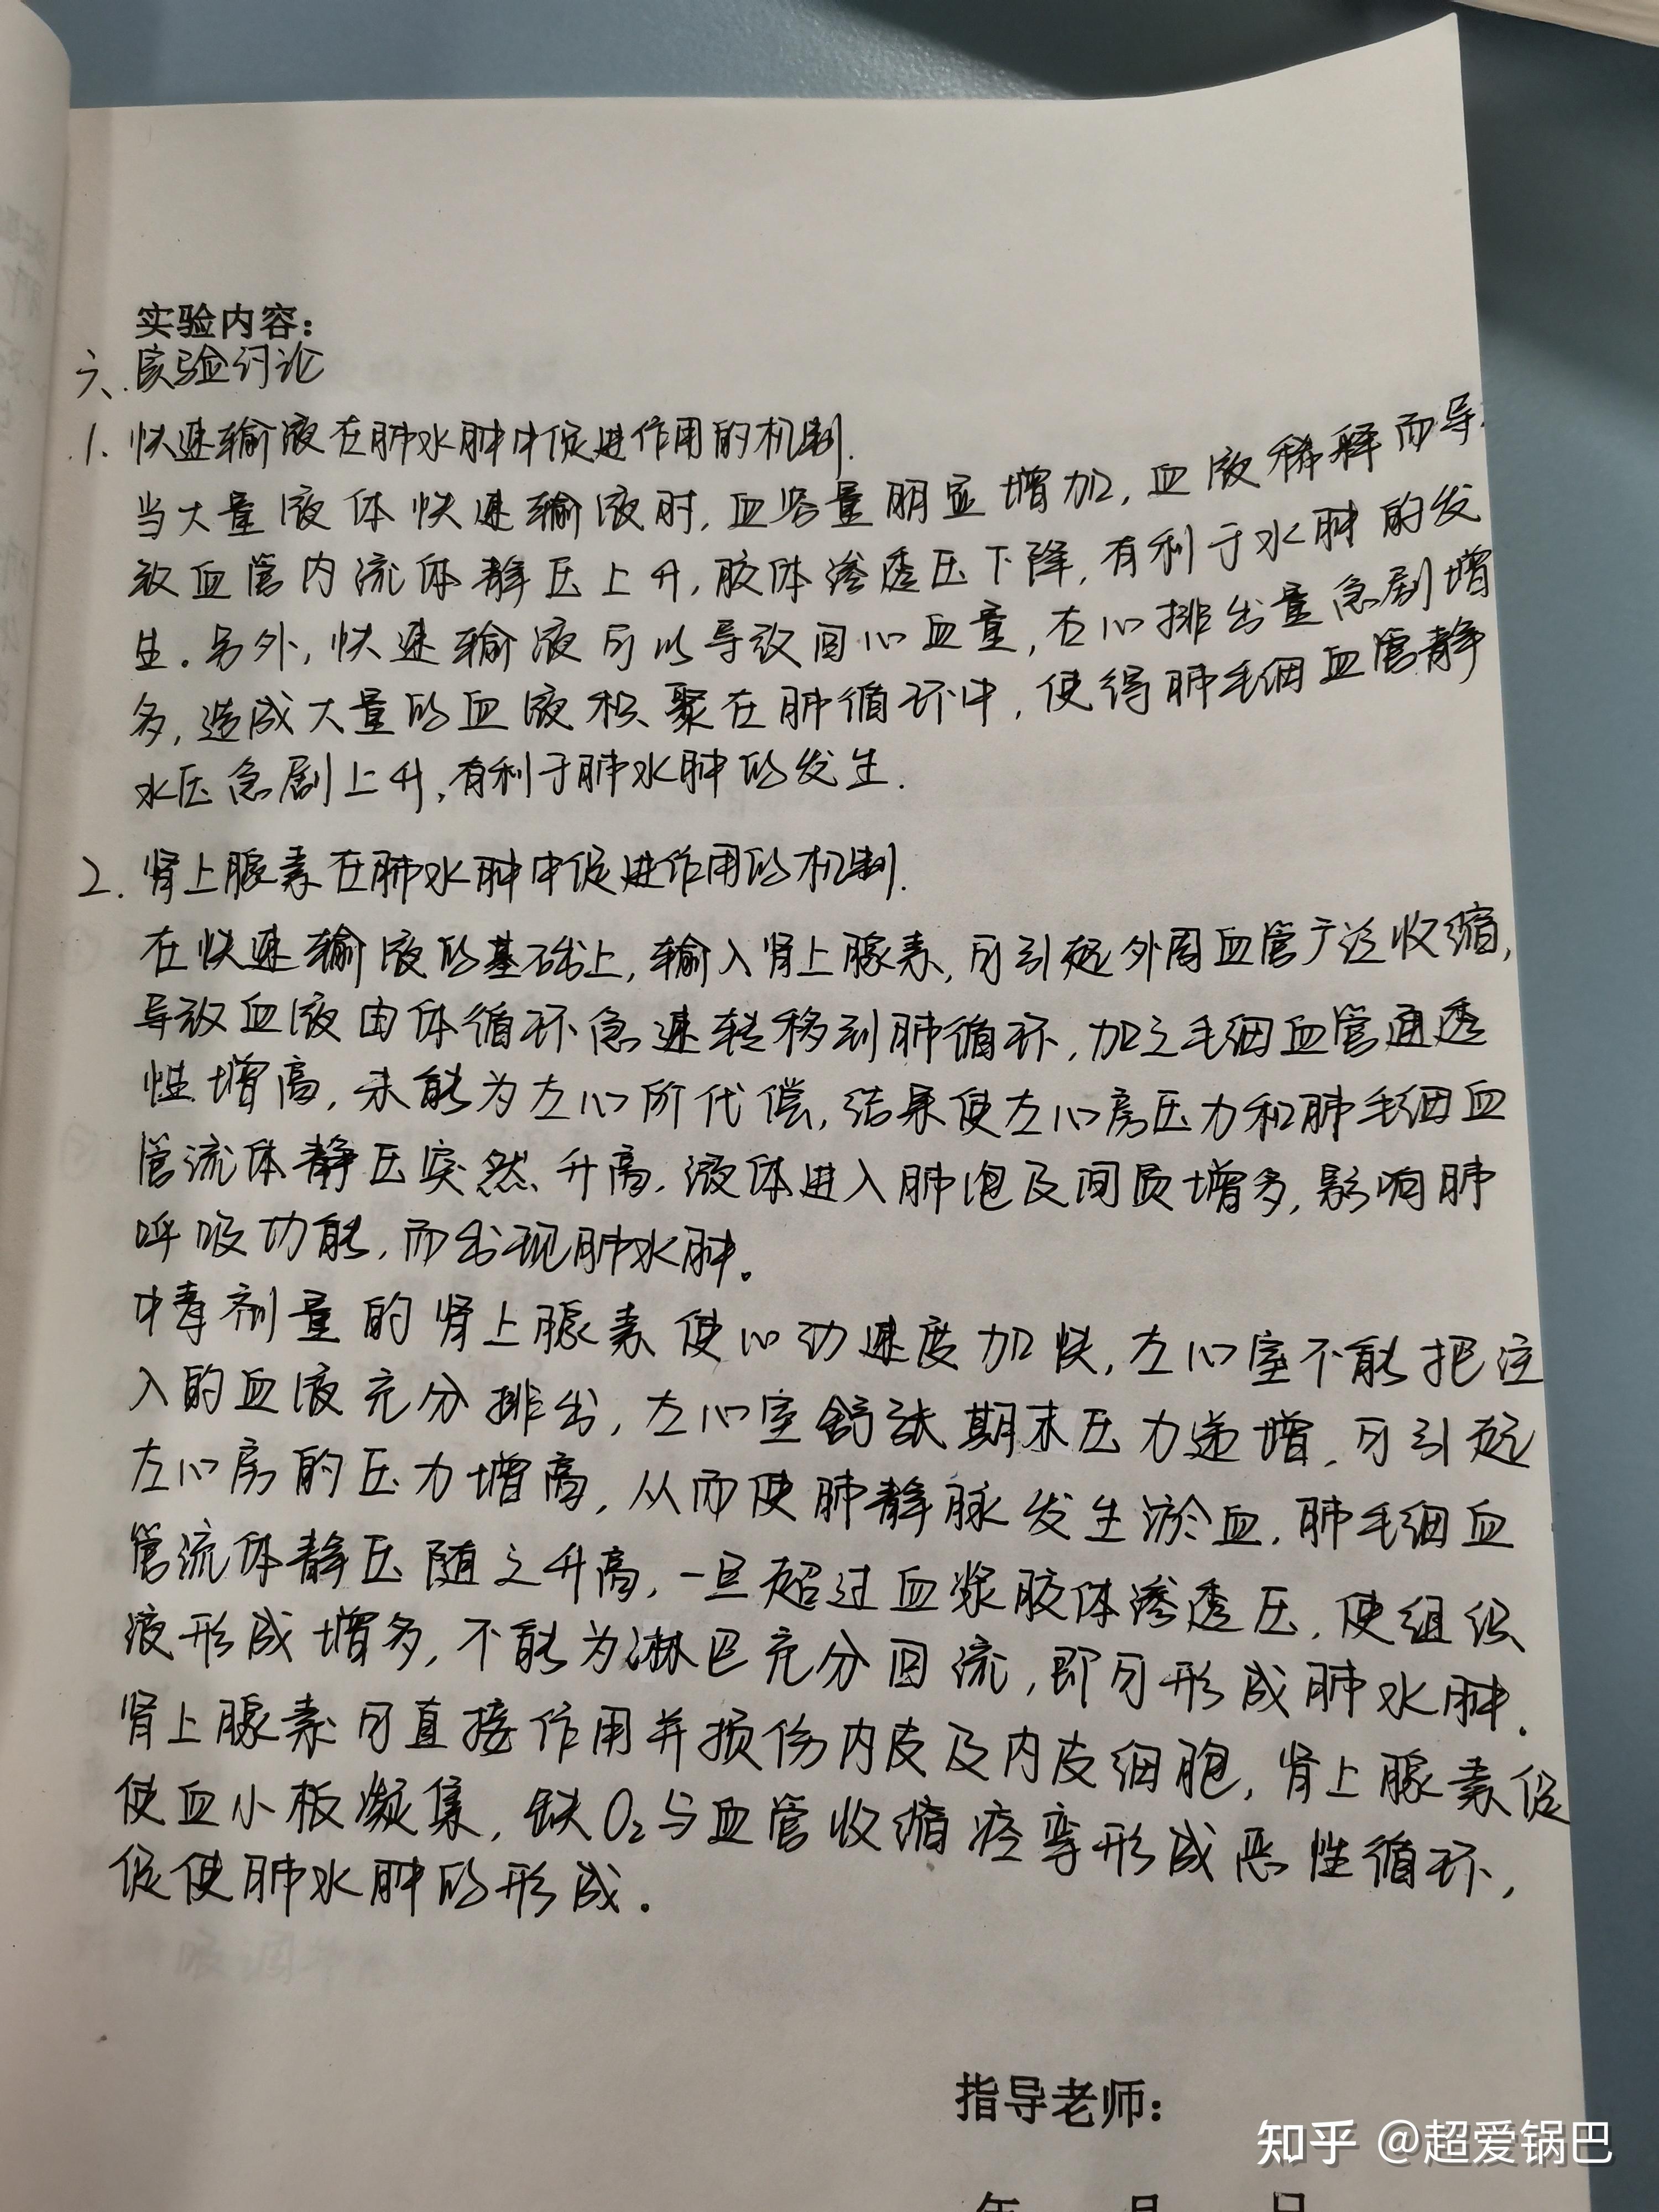 实验内容：
六、实验讨论
1. 快速输液在肺水肿中促进作用的机制.
当大量液体快速输液时，血容量明显增加，血液稀释而导
致血管内流体静压上升，胶体渗透压下降，有利于水肿的发
生。另外，快速输液可以导致回心血量，右心排出量急剧增
多，造成大量的血液积聚在肺循环中，使得肺毛细血管静
水压急剧上升，有利于肺水肿的发生.
2. 肾上腺素在肺水肿中促进作用的机制.
在快速输液的基础上，输入肾上腺素，可引起外周血管广泛收缩，
导致血液由体循环急速转移到肺循环，加之毛细血管通透
性增高，未能为左心所代偿，结果使左心房压力和肺毛细血
管流体静压突然升高，液体进入肺泡及间质增多，影响肺
呼吸功能，而出现肺水肿。
中毒剂量的肾上腺素使心动速度加快，左心室不能把注
入的血液充分排出，左心室舒张期末压力递增，可引起
左心房的压力增高，从而使肺静脉发生淤血，肺毛细血
管流体静压随之升高，一旦超过血浆胶体渗透压，使组织
液形成增多，不能为淋巴充分回流，即可形成肺水肿.
肾上腺素可直接作用并损伤内皮及内皮细胞，肾上腺素促
使血小板凝集，缺O₂与血管收缩痉挛形成恶性循环，
促使肺水肿的形成.
指导老师：
年 月 日
知乎 @超爱锅巴